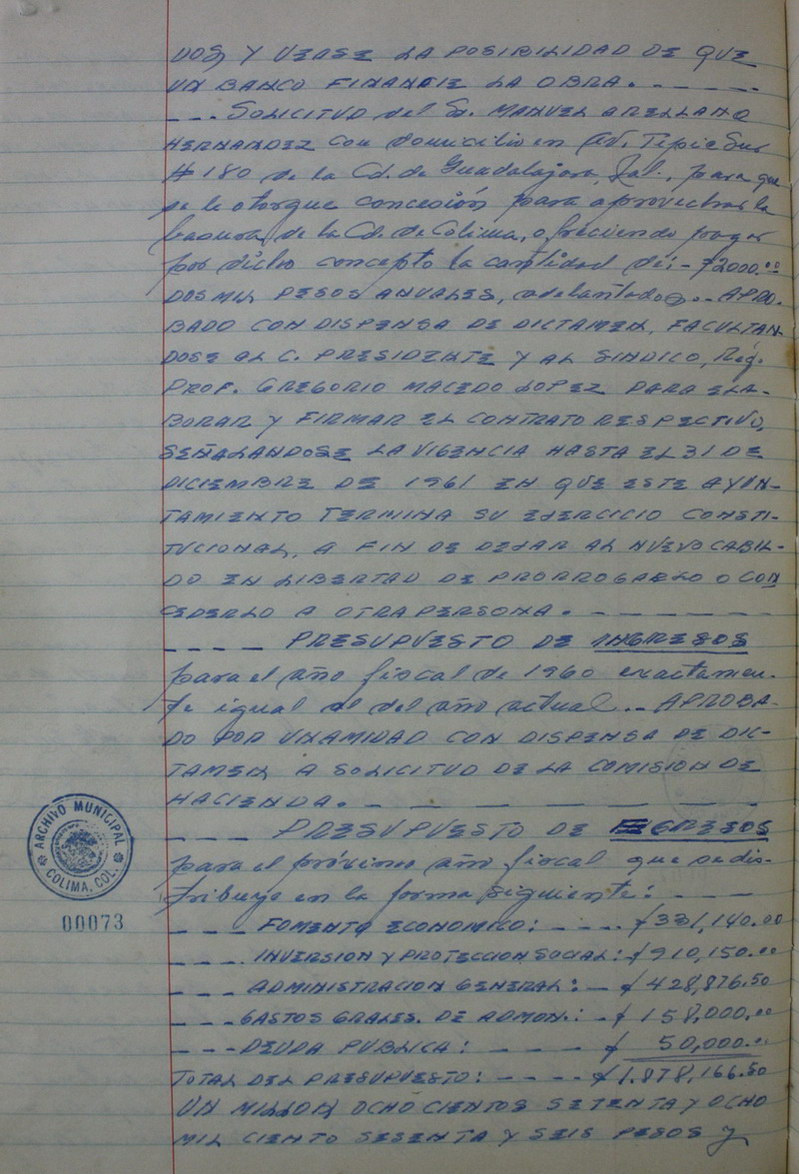 DOS, Y VEASE LA POSIBILIDAD DE QUE
UN BANCO FINANCIE LA OBRA. - - - - -
- - - SOLICITUD del Sr. MANUEL ARELLANO
HERNANDEZ con domicilio en Av. Tepic Sur
# 180 de la Cd. de Guadalajara, Jal., para que
se le otorgue concesión para aprovechar la
basura de la Cd. de Colima, ofreciendo pagar
por dicho concepto la cantidad de: - $2000.00
DOS MIL PESOS ANUALES, adelantados. - APRO-
BADO CON DISPENSA DE DICTAMEN, FACULTAN
DOSE AL C. PRESIDENTE Y AL SINDICO, Reg.
PROF. GREGORIO MACEDO LOPEZ PARA ELA-
BORAR Y FIRMAR EL CONTRATO RESPECTIVO,
SEÑALANDOSE LA VIGENCIA HASTA EL 31 DE
DICIEMBRE DE 1961 EN QUE ESTE AYUN-
TAMIENTO TERMINA SU EJERCICIO CONSTI-
TUCIONAL, A FIN DE DEJAR AL NUEVO CABIL-
DO EN LIBERTAD DE PRORROGARLO O CON
CEDERLO A OTRA PERSONA. - - - - - - -
- - - - PRESUPUESTO DE INGRESOS
para el año fiscal de 1960 exactamen-
te igual al del año actual. - - APROBA-
DO POR UNAMIDAD CON DISPENSA DE DIC-
TAMEN, A SOLICITUD DE LA COMISION DE
HACIENDA. - - - - - - -
- - - - PRESUPUESTO DE EGRESOS
para el próximo año fiscal que se dis-
tribuye en la forma siguiente: - - - -
- - - FOMENTO ECONOMICO: - - - - $331,140.00
- - - - INVERSION Y PROTECCION SOCIAL: $910,150.00
- - - - ADMINISTRACION GENERAL: - $428,876.50
- - - - GASTOS GRALES. DE ADMON.: - $158,000.00
- - - - DEUDA PUBLICA: - - - - $50,000.00
TOTAL DEL PRESUPUESTO: - - - - $1.878,166.50
UN MILLON OCHOCIENTOS SETENTA Y OCHO
MIL CIENTO SESENTA Y SEIS PESOS Y
ARCHIVO MUNICIPAL
COLIMA, COL.
00073